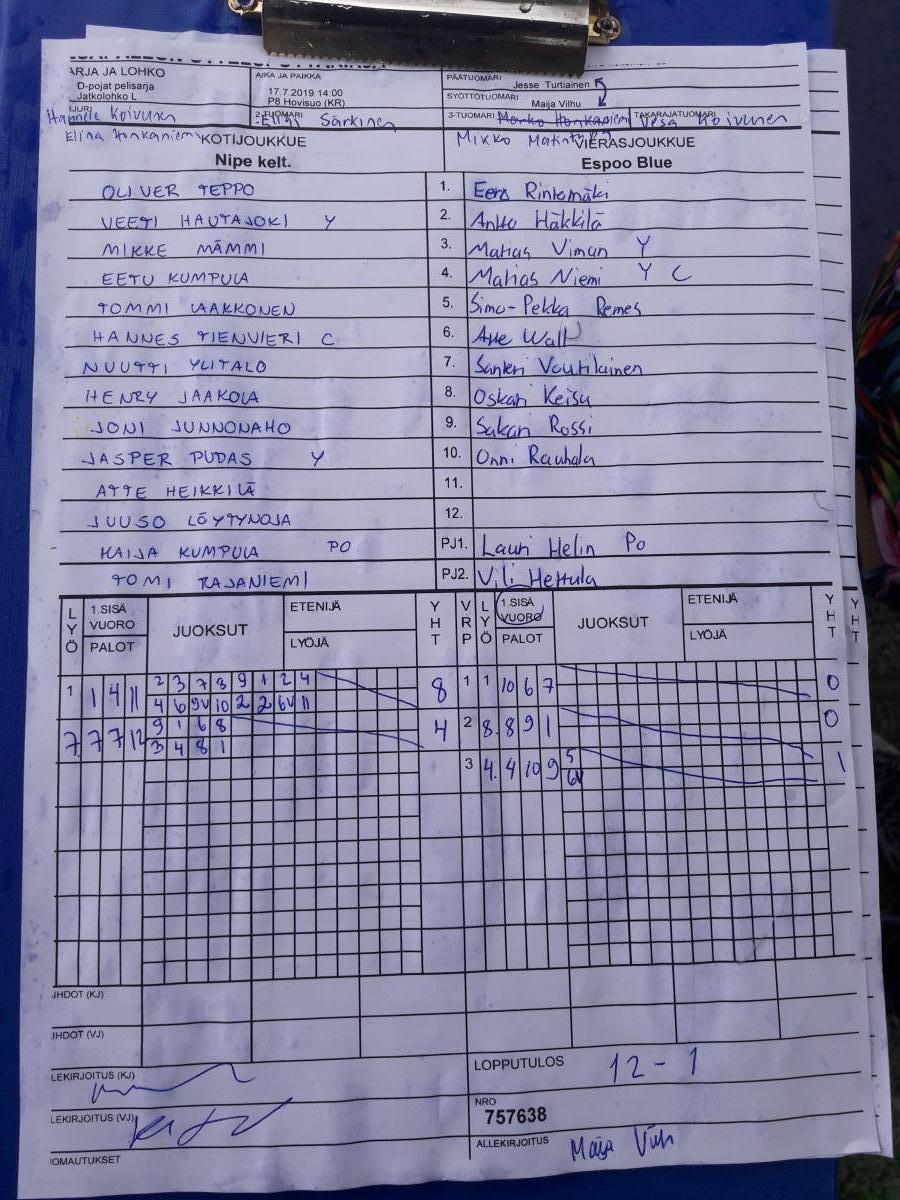 ARJA JA LOHKO AIKA JA PAIKKA PÄÄTUOMARI Jesse Turtiainen
D-pojat pelisarja 17.7.2019 14:00 SYÖTTÖTUOMARI Maija Vilhu
Jatkolohko L P8 Hovisuo (KR)
JURI Hannele Koivunen 2-TUOMARI Elias Särkinen 3-TUOMARI TAKARAJATUOMARI Vesa Koivunen
Elina Honkaniemi KOTIJOUKKUE Mikko VIERASJOUKKUE
Nipe kelt. Espoo Blue
OLIVER TEPPO 1. Eero Rintamäki
VEETI HAUTAJOKI Y 2. Antto Häkkilä
MIKKE MÄMMI 3. Matias Viman Y
EETU KUMPULA 4. Matias Niemi Y C
TOMMI LAAKKONEN 5. Simo-Pekka Remes
HANNES TIENVIERI C 6. Atte Wall
NUUTTI YLITALO 7. Santeri Voutilainen
HENRY JAAKOLA 8. Oskari Keisu
JONI JUNNONAHO 9. Sakari Rossi
JASPER PUDAS Y 10. Onni Rauhala
ATTE HEIKKILÄ 11.
JUUSO LÖYTYNOJA 12.
KAIJA KUMPULA PO PJ1. Lauri Helin Po
TOMI RAJANIEMI PJ2. Vili Hettula
LYÖ 1.SISÄ VUORO PALOT JUOKSUT ETENIJÄ LYÖJÄ YHT VRP LYÖ 1.SISÄ VUORO PALOT JUOKSUT ETENIJÄ LYÖJÄ YHT YHT
1 1 4 11 2 3 7 8 9 1 2 4 8 1 1 10 6 7 0
4 6 9V 10 2 2 6V 11
7 7 7 12 9 1 6 8 4 2 8. 8 9 1 0
3 4 8 1
3 4. 4 10 9 5 1
6V
JHDOT (KJ)
JHDOT (VJ)
LEKIRJOITUS (KJ) LOPPUTULOS 12 - 1
LEKIRJOITUS (VJ) NRO 757638
OMAUTUKSET ALLEKIRJOITUS Maija Vilh